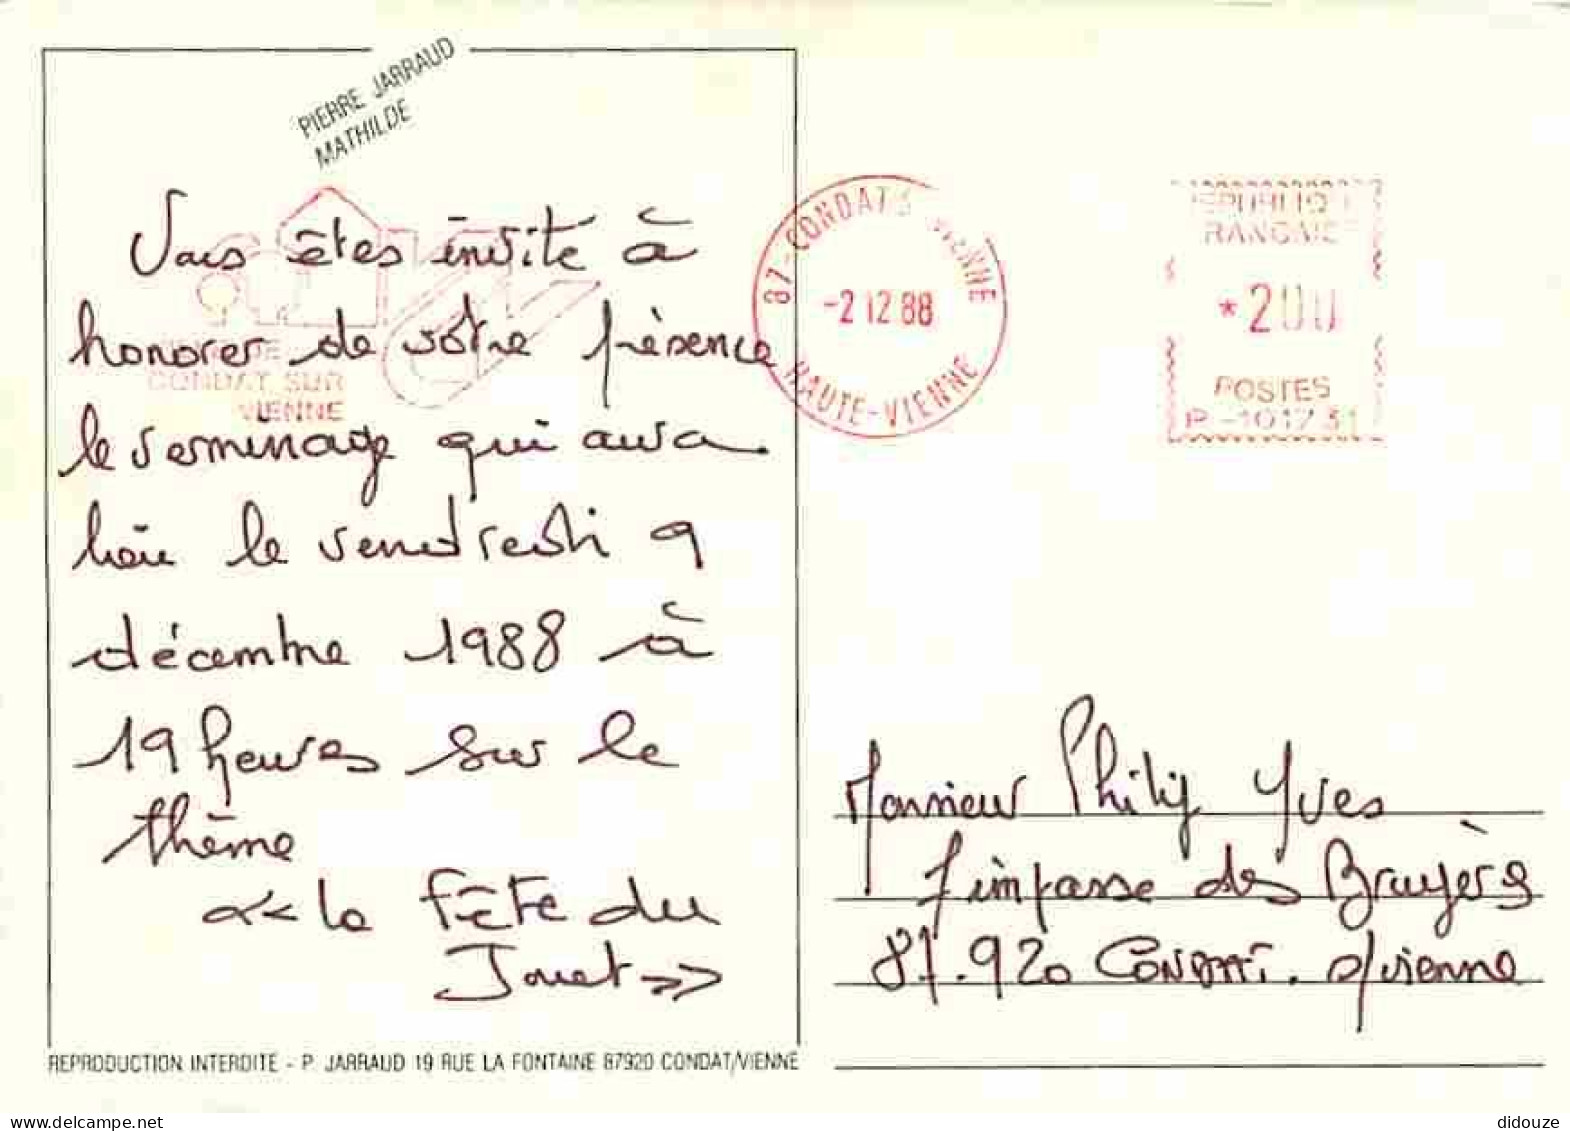 PIERRE JARRAUD
MATHILDE
Vous êtes invité à
honorer de votre présence
le verninage qui aura
lieu le vendredi 9
décembre 1988 à
19 heures sur le
thème
<< la Fête du
Jouet >>
CONDAT SUR
VIENNE
REPRODUCTION INTERDITE - P. JARRAUD 19 RUE LA FONTAINE 87920 CONDAT/VIENNE
87-CONDAT S VIENNE
-2 12 88
HAUTE-VIENNE
REPUBLIQUE
FRANCAISE
*200
POSTES
P.-101731
Monsieur Philip Yves
7 impasse des Bruyères
87.920 CONDAT. s/vienne
www.delcampe.net
didouze